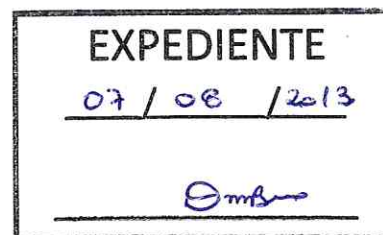 EXPEDIENTE
07 / 08 / 2013